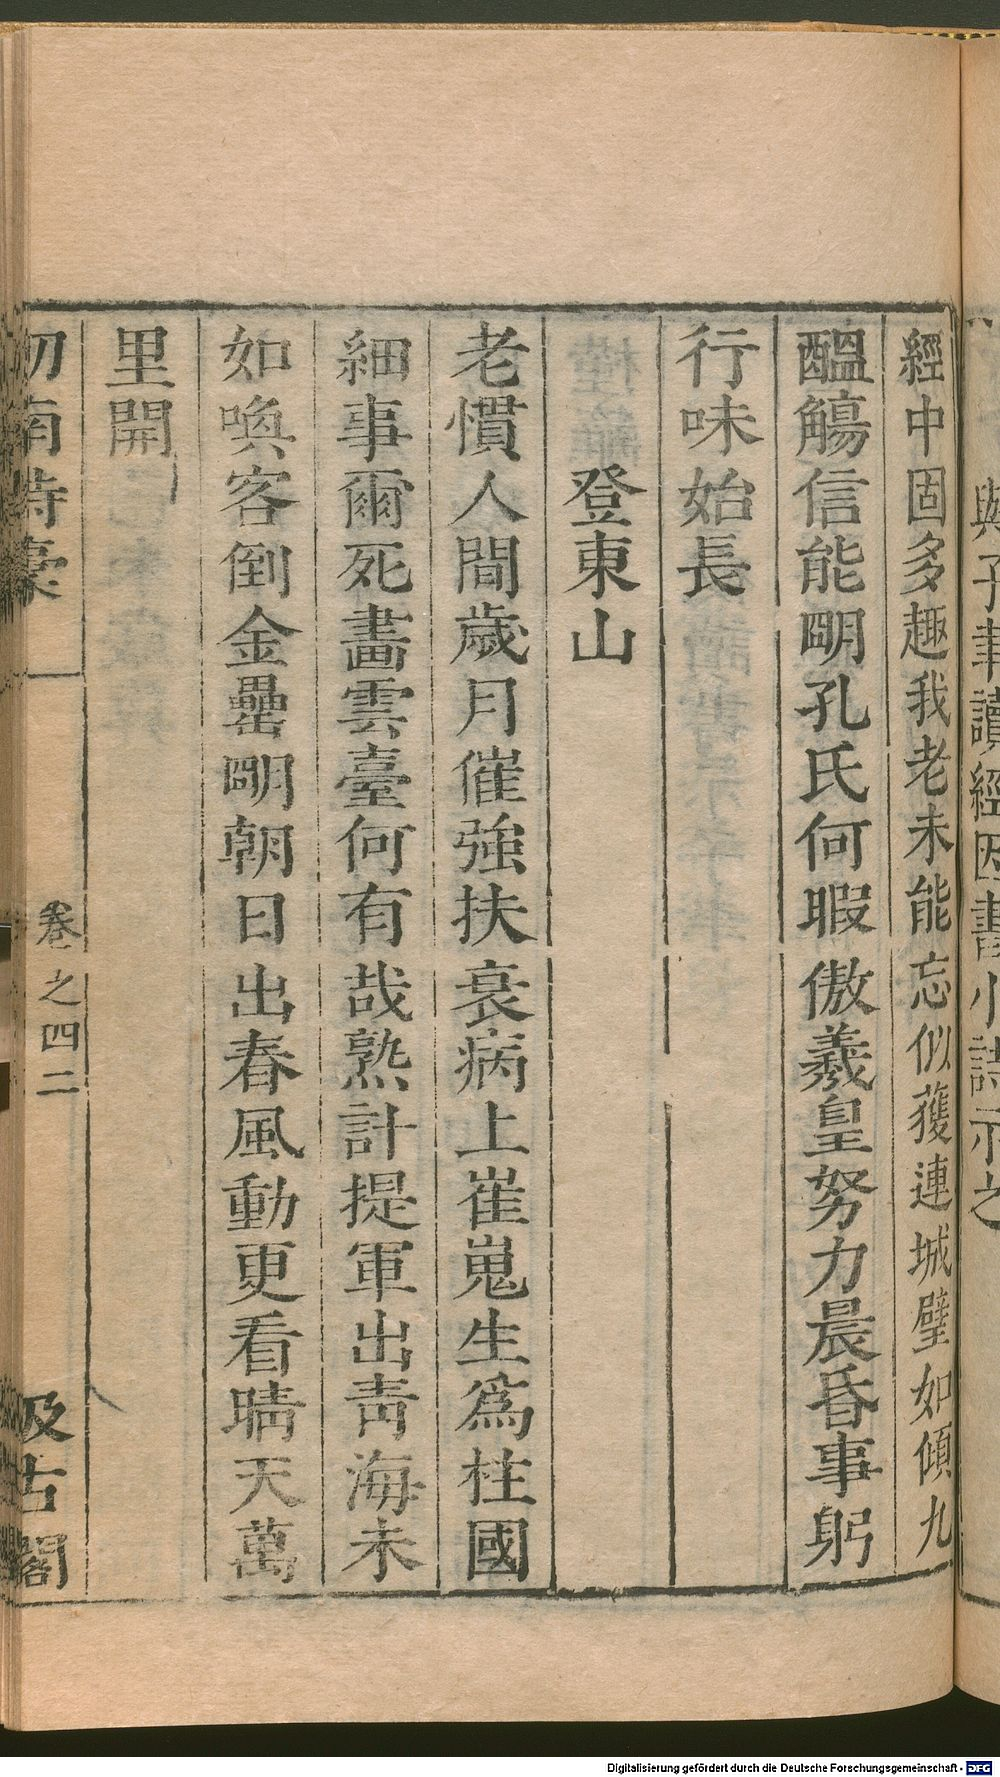 與子聿讀經因書小詩示之
經中固多趣我老未能忘似獲連城璧如傾九
醞觴信能明孔氏何暇傲羲皇努力晨昏事躬
行味始長
登東山
老慣人間歲月催強扶衰病上崔嵬生爲柱國
細事爾死畫雲臺何有哉熟計提軍出青海未
如喚客倒金罍明朝日出春風動更看晴天萬
里開
劒南詩稾
卷之四二
汲古閣
Digitalisierung gefördert durch die Deutsche Forschungsgemeinschaft - DFG